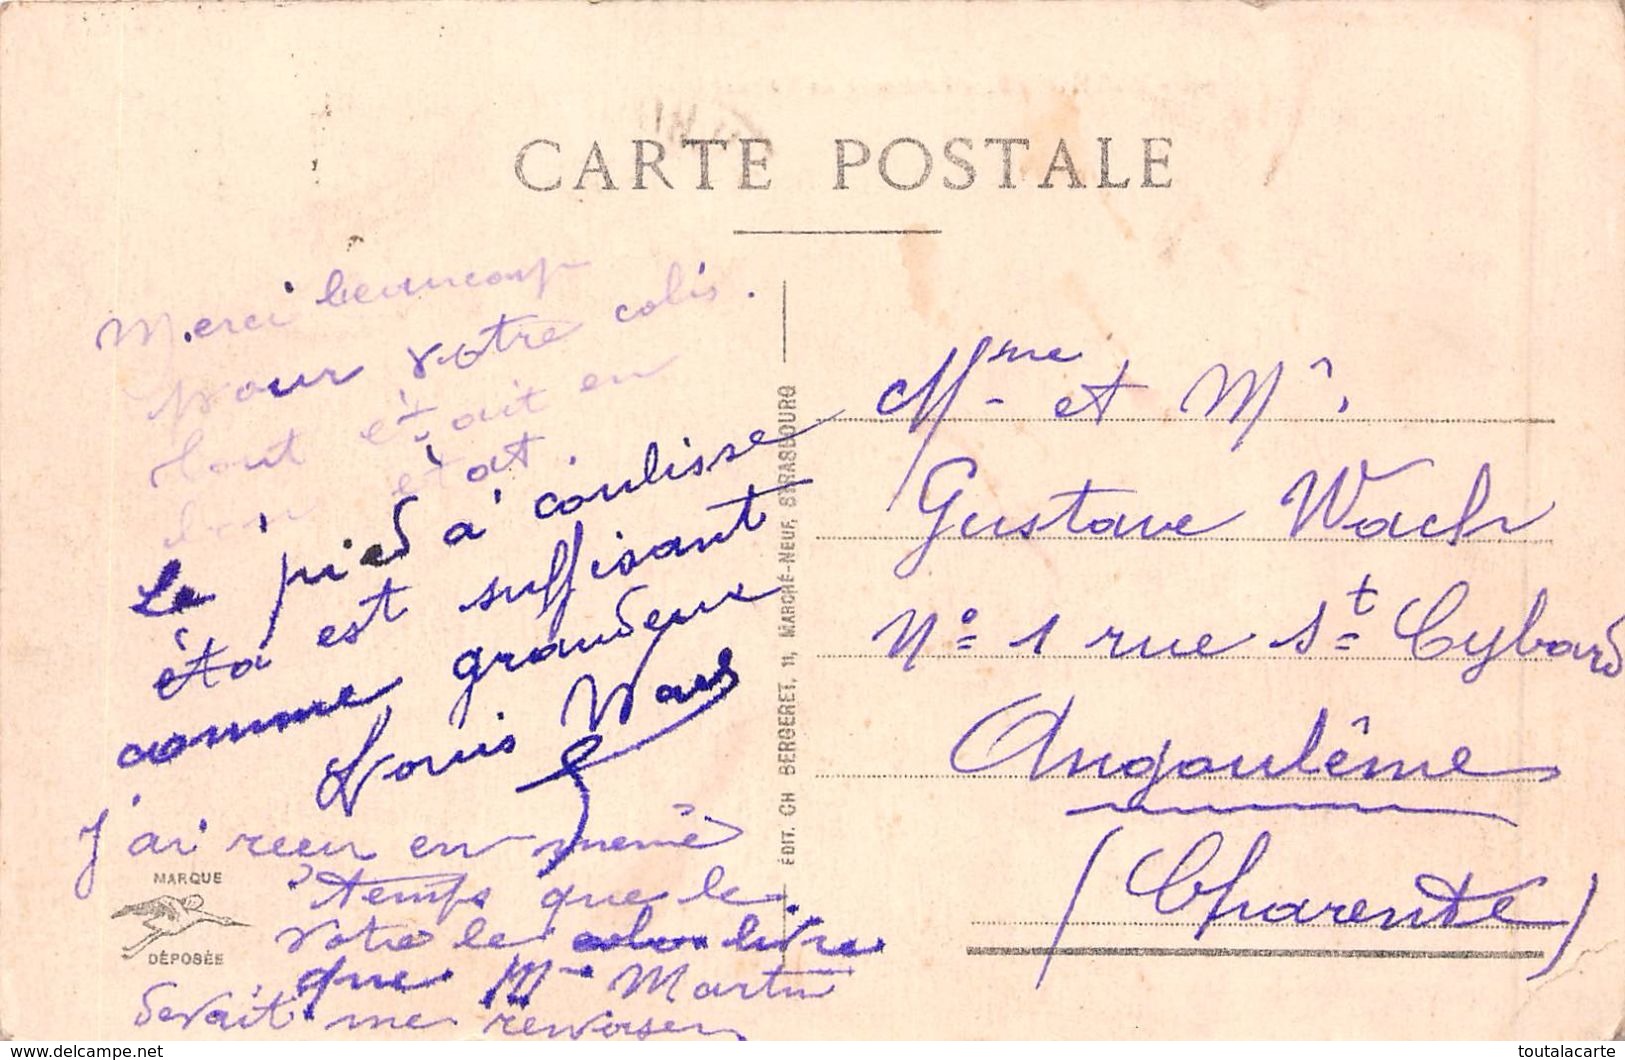 CARTE POSTALE
Merci beaucoup
pour votre colis.
tout était en
bon état.
Le pied à coulisse
éta est suffisant
comme grandeur
Louis Wach
J'ai reçu en même
temps que le
votre le colis livre
que Mr Martin
devait me renvoyer
MARQUE
DÉPOSÉE
ÉDIT. CH BERGERET, 11, MARCHÉ-NEUF, STRASBOURG
Mme et Mr
Gustave Wach
No 1 rue St Cybard
Angoulême
(Charente)
www.delcampe.net
toutalacarte